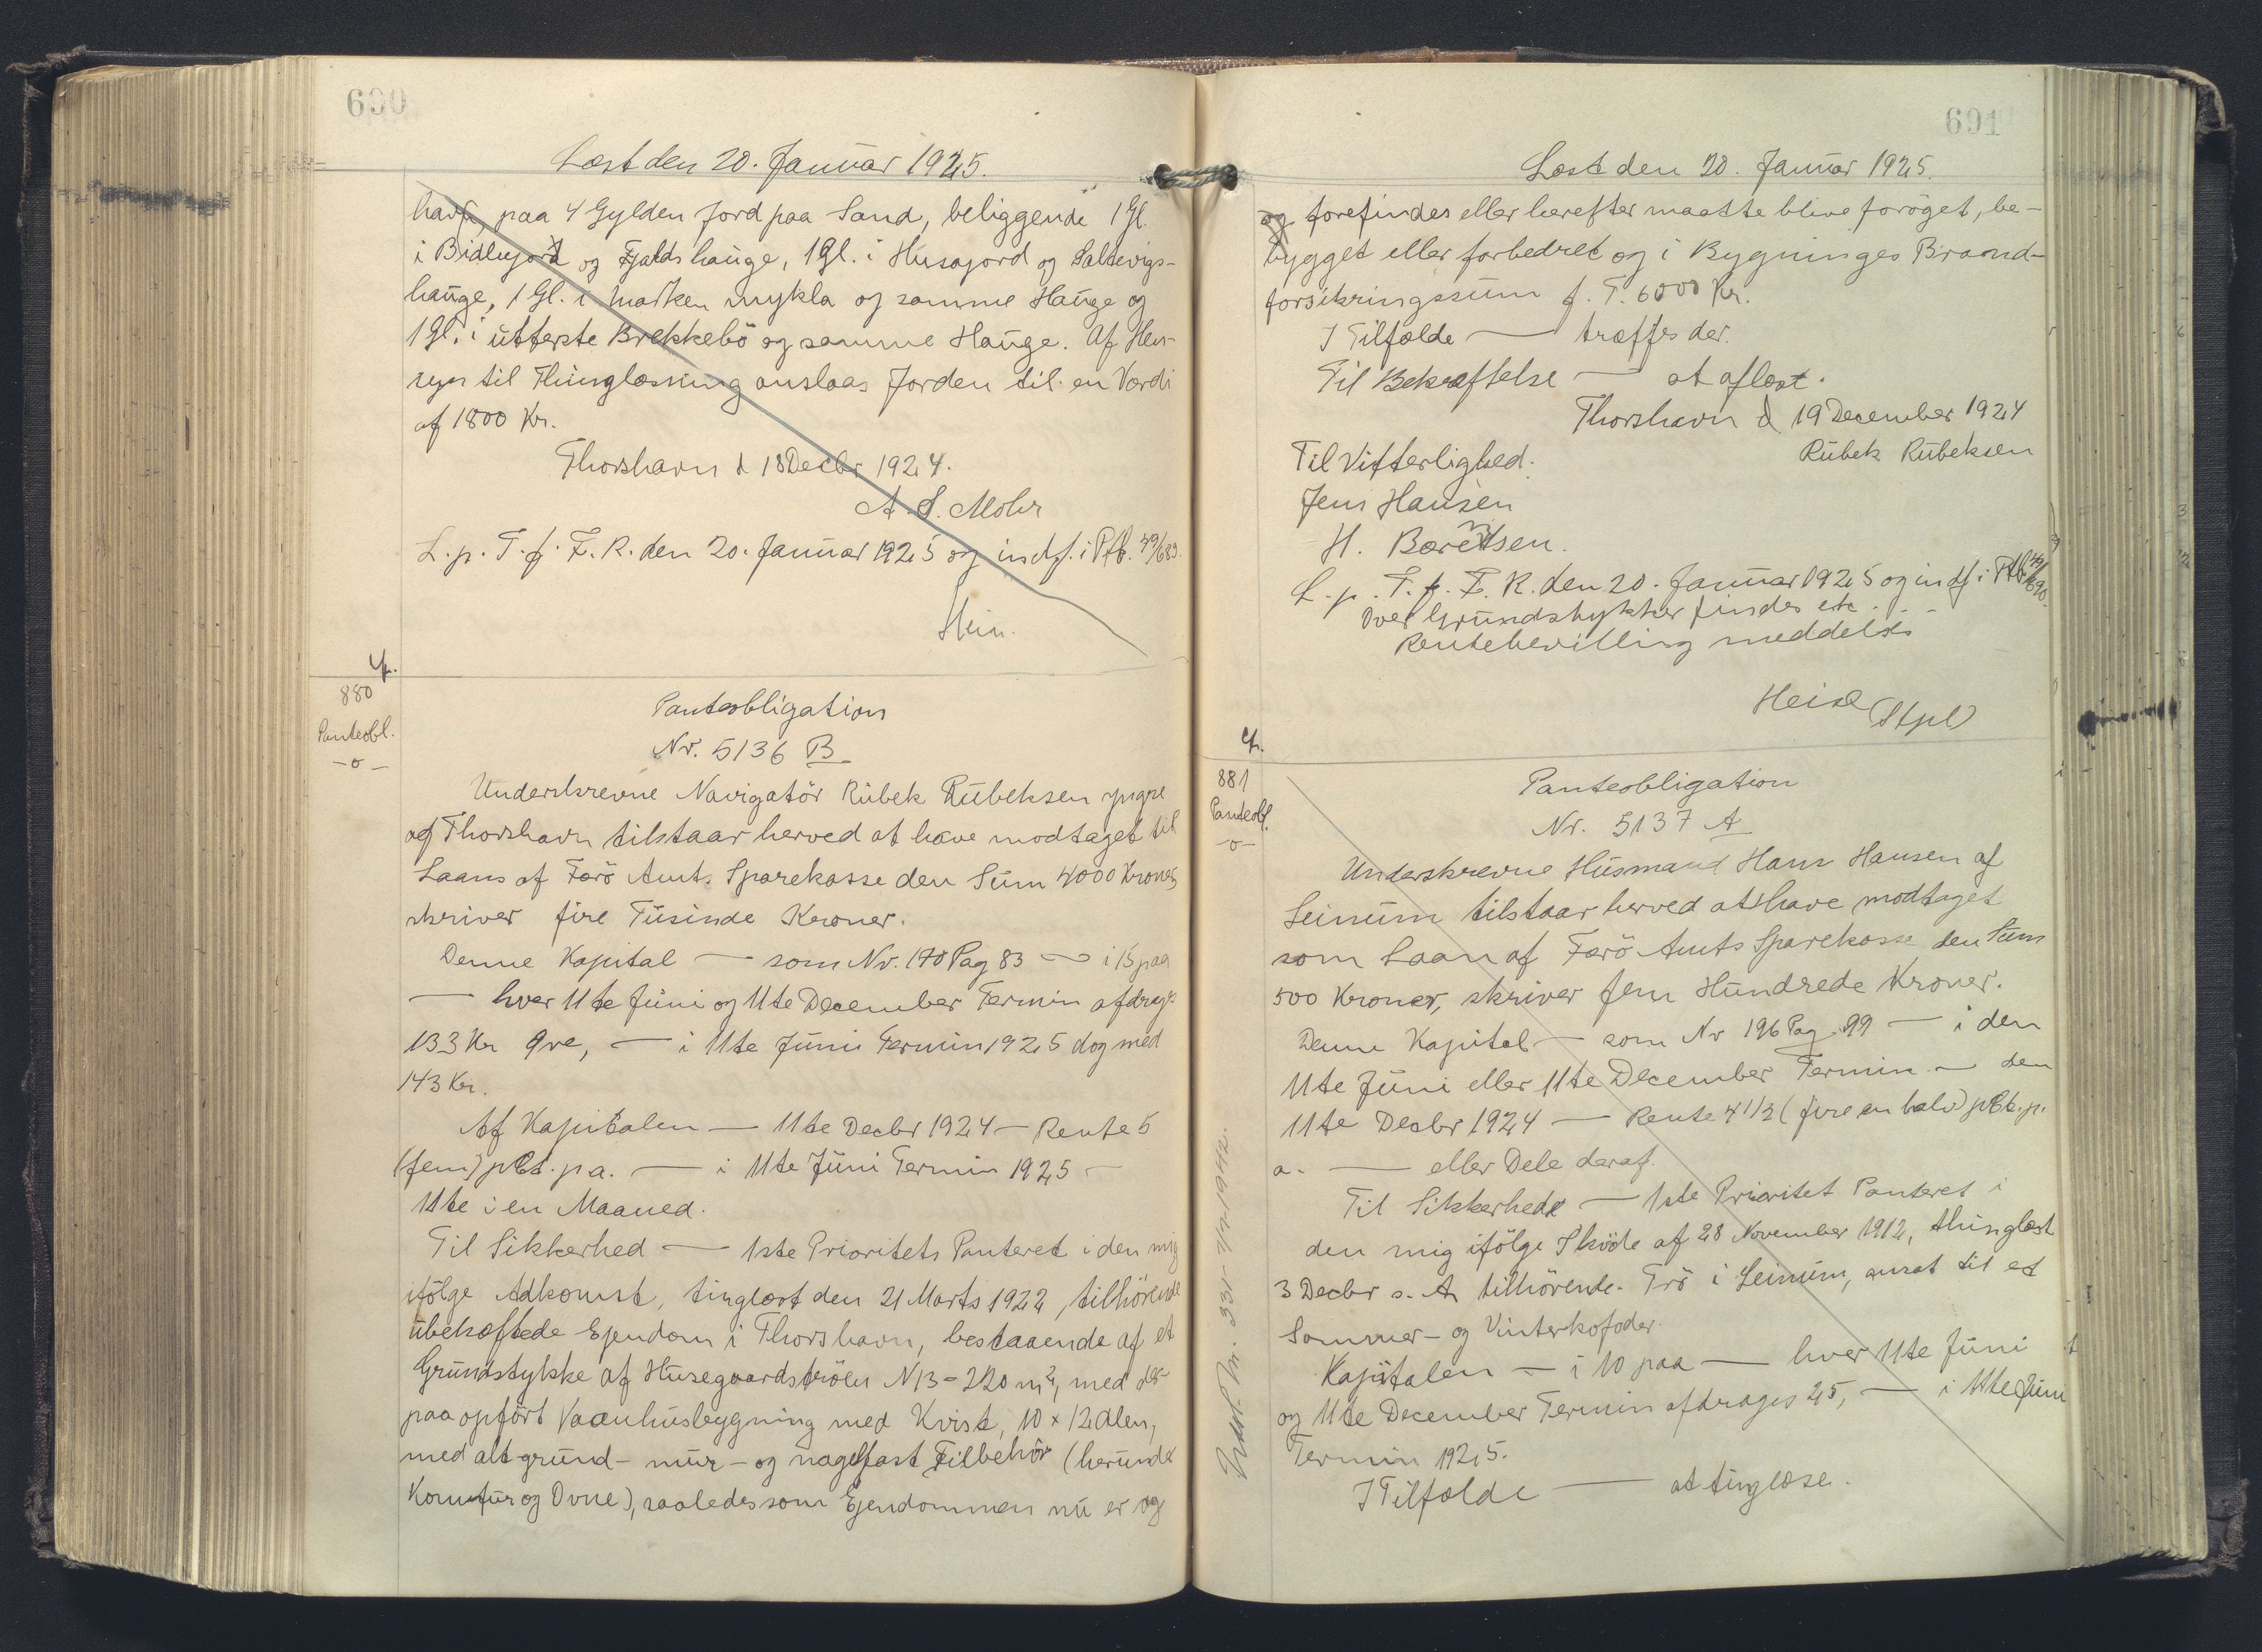 690
Læst den 20. Januar 1925.
havn, paa 4 Gylden Jord paa Sand, beliggende 1 Gl.
i Bidlegjord og Fjaldshauge, 1 Gl. i Husagord og Saltevigs-
hauge, 1 Gl. i Marken mykla og samme Hauge og
1 Gl. i utterste Brekkebö og samme Hauge. Af Hen-
syn til Thinglæsning anslaas Jorden til en Værdi
af 1800 Kr.
Thorshavn d 18 Decbr 1924.
A. S. Mohr
L. p. T. f. F. R. den 20. Januar 1925 og indf. i Ptb. 49/689.
880
Panteobl.
-o-
Panteobligation
Nr. 5136 B
Underskrevne Navigatör Rubek Rubeksen yngre
af Thorshavn tilstaar herved at have modtaget til
Laans af Færö Amts Sparekasse den Sum 4000 Kroner,
skriver fire Tusinde Kroner.
Denne Kapital — som Nr. 170 Pag 83 — i 15 paa
— hver 11te Juni og 11te December Termin afdrages
133 Kr Øre, — i 11te Juni Termin 1925 dog med
143 Kr.
Af Kapitalen — 11te Decbr 1924 — Rente 5
(fem) pCt. p a. — i 11te Juni Termin 1925 —
11te i en Maaned.
Til Sikkerhed — 1ste Prioritets Panteret i den mig
ifölge Adkomst, tinglæst den 21 Marts 1922, tilhörende
ubehæftede Ejendom i Thorshavn, bestaaende af et
Grundstykke af Husegaardströen N 13 = 220 m², med der-
paa opfört Vaanhusbygning med Kvist, 10 x 12 Alen,
med alt grund- mur- og nagelfast Tilbehör (herunder
Komfur og Ovne), saaledes som Ejendommen nu er og
691
Læst den 20. Januar 1925.
og forefindes eller herefter maatte blive foröget, be-
bygget eller forbedret og i Bygninges Brand-
forsikringssum f. T. 6000 Kr.
I Tilfælde — træffes der.
Til Bekræftelse — at aflæst.
Thorshavn d 19 December 1924
Til Vitterlighed. Rubek Rubeksen
Jens Hansen
H. Berentsen.
L. p. T. f. F. R. den 20. Januar 1925 og indf i Ptb. 49/690.
Over Grundstykker findes etc . . .
Rentebevilling meddeles
Heise (Stpl)
881
Panteobl.
-o-
Panteobligation
Nr. 5137 A
Underskrevne Husmand Hans Hansen af
Leinum tilstaar herved at have modtaget
som Laan af Færö Amts Sparekasse den Sum
500 Kroner, skriver fem Hundrede Kroner.
Denne Kapital — som Nr 196 Pag. 99 — i den
11te Juni eller 11te December Termin — den
11te Decbr 1924 — Rente 4 1/2 (fire en halv) pCt. p.
a. — eller Dele deraf.
Til Sikkerhed — 1ste Prioritet Panteret i
den mig ifölge Sköde af 28 November 1912, thinglæst
3 Decbr s. A tilhörende Trö i Leinum, ansat til et
Sommer- og Vinterkofoder.
Kapitalen — i 10 paa — hver 11te Juni
og 11te December Termin afdrages 25, — i 11te Juni
Termin 1925.
I Tilfælde — at tinglæse.